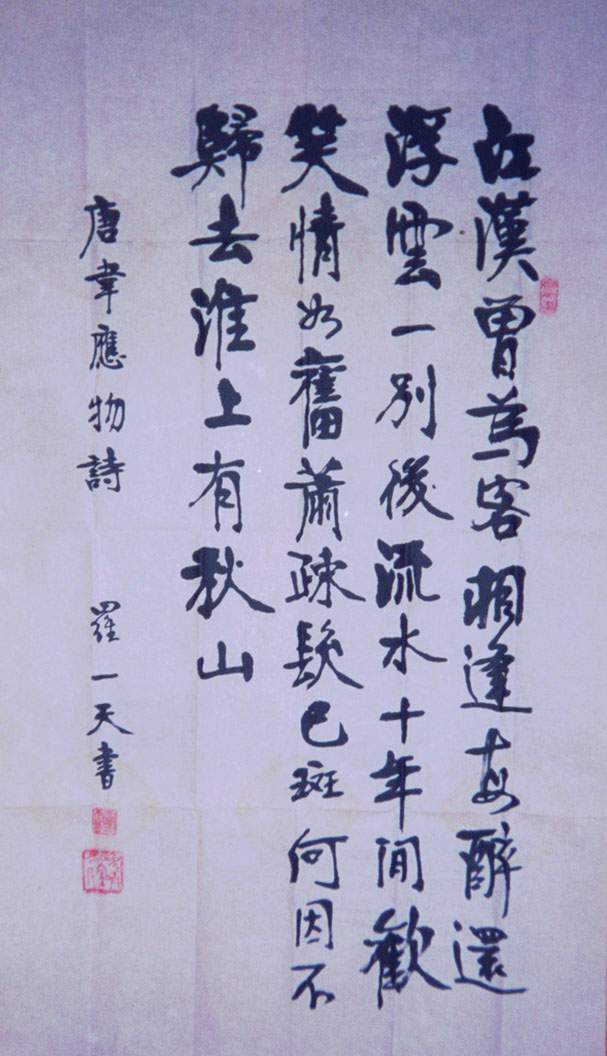 江漢曾為客相逢每醉還
浮雲一別後流水十年間歡
笑情如舊蕭疎鬢已斑何因不
歸去淮上有秋山
唐韋應物詩 羅一天書